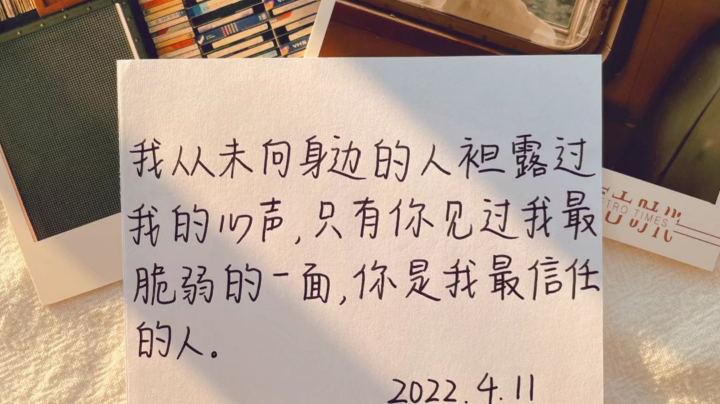 我从未向身边的人袒露过
我的心声,只有你见过我最
脆弱的一面,你是我最信任
的人。
2022.4.11
TRO TIMES